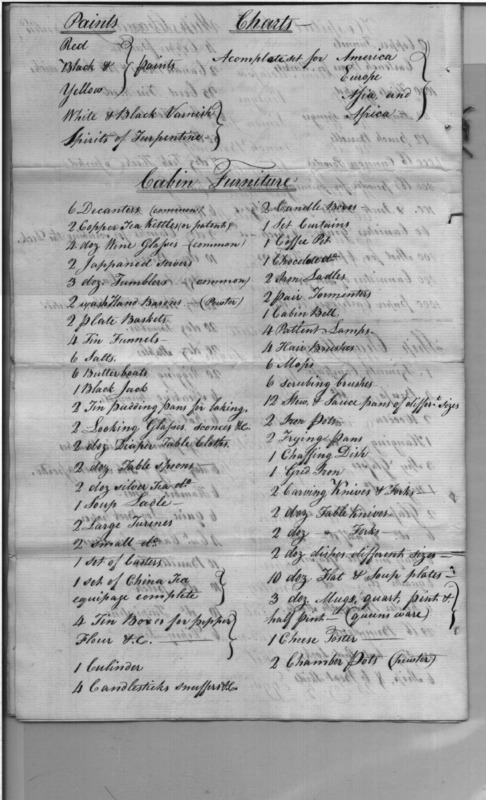 Paints
Red
Black &
Yellow
paints
White & Black Varnish
Spirits of Turpentine
Charts
A complete set for America
Europe
Asia and
Africa
Cabin Furniture
6 Decanters (common)
2 Copper Tea Kettles (or patent)
4 doz Wine Glasses (common)
2 Jappaned
3 doz Tumblers (common)
2 wash hand Basons (Pewter)
2 plate Baskets
4 Tin Funnels
6 Salts
6 Butterboats
1 Black Jack
2 Tin pudding pans for baking
2 Looking Glasses, sconces &c.
2 doz Diaper Table Cloths
2 doz Table spoons
2 doz silver Tea do
1 Soup Ladle
2 Large Turines
2 small do.
1 set of Casters
1 set of China Tea
equipage complete
4 Tin Boxes for pepper
Flour &c.
1 Culinder
4 Candlesticks snuffers &c
2 Candle boxes
1 Set Curtains
1 Coffee Pot
1 Chocolate do
2 Iron Ladles
2 pair Tormenters
1 Cabin Bell
4 Pattent Lamps
4 Hair Brushes
6 Mops
6 Scrubing brushes
12 Stew & Sauce pans of differt. sizes
2 Iron Pots
2 Frying pans
1 Chaffing Dish
1 Grid Iron
2 Carving Knives & Forks
2 doz Table Knives
2 doz " Forks
2 doz dishes different sizes
10 doz Flat & Soup plates
3 doz Mugs, quart, pint &
half pint (queens ware)
1 Cheese Toster
2 Chamber Pots (pewter)